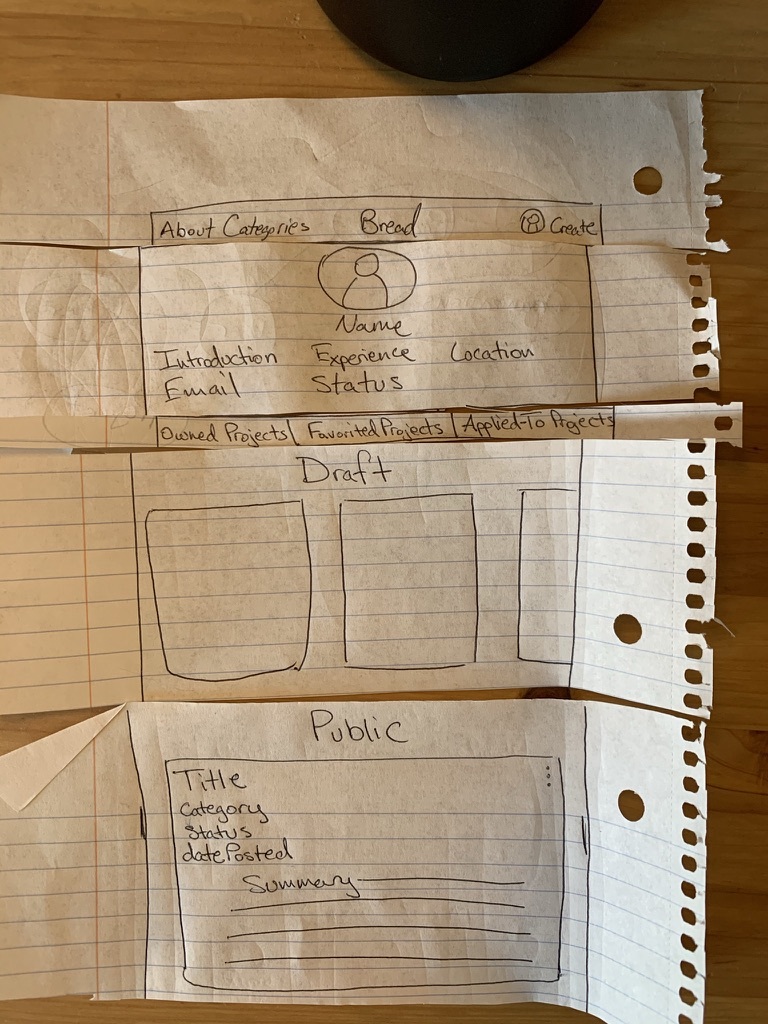 About Categories Bread Create
Name
Introduction Experience Location
Email Status
Owned Projects Favorited Projects Applied-To Projects
Draft
Public
Title
Category
Status
datePosted
Summary